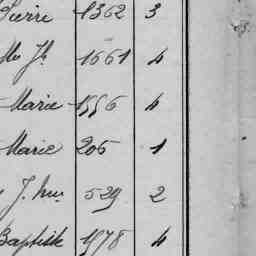 Pierre 1362 3
Me Jh 1661 4
Marie 1556 4
Marie 205 1
J. Mie 529 2
Baptiste 1578 4